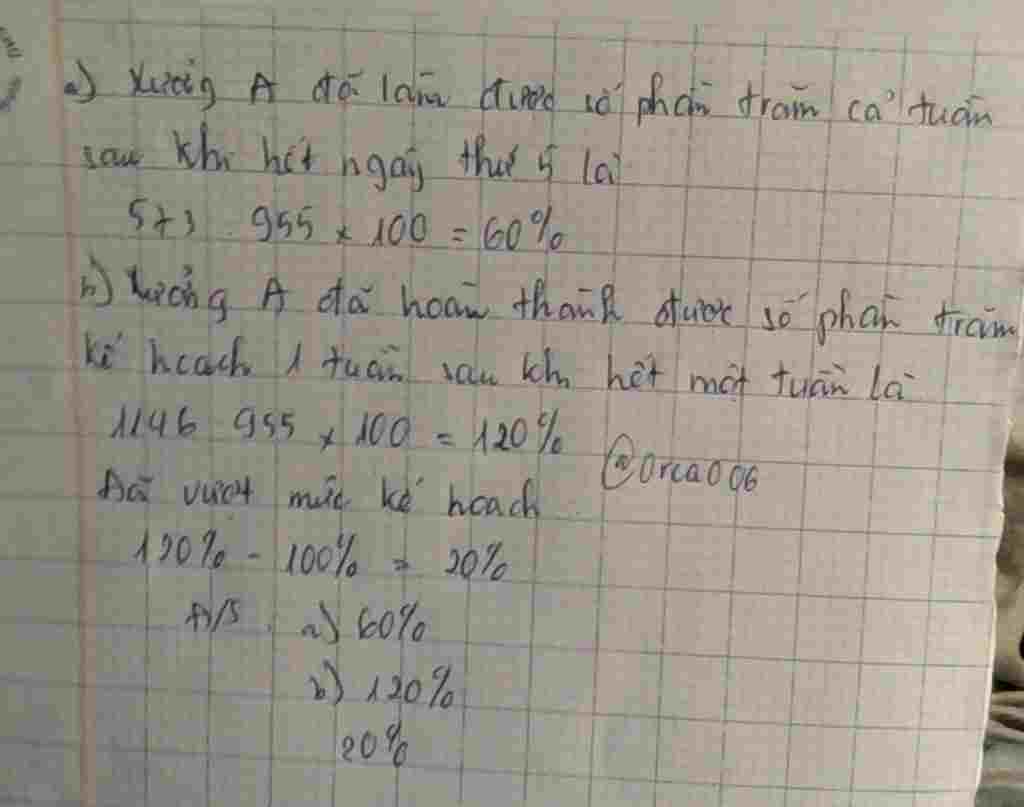 a) Xưởng A đã làm được số phần trăm cả tuần
sau khi hết ngày thứ 5 là
573 : 955 × 100 = 60%
b) Xưởng A đã hoàn thành được số phần trăm
kế hoạch 1 tuần sau khi hết một tuần là
1146 : 955 × 100 = 120%
@Orca006
Đã vượt mức kế hoạch
120% - 100% = 20%
Đ/S : a) 60%
b) 120%
20%